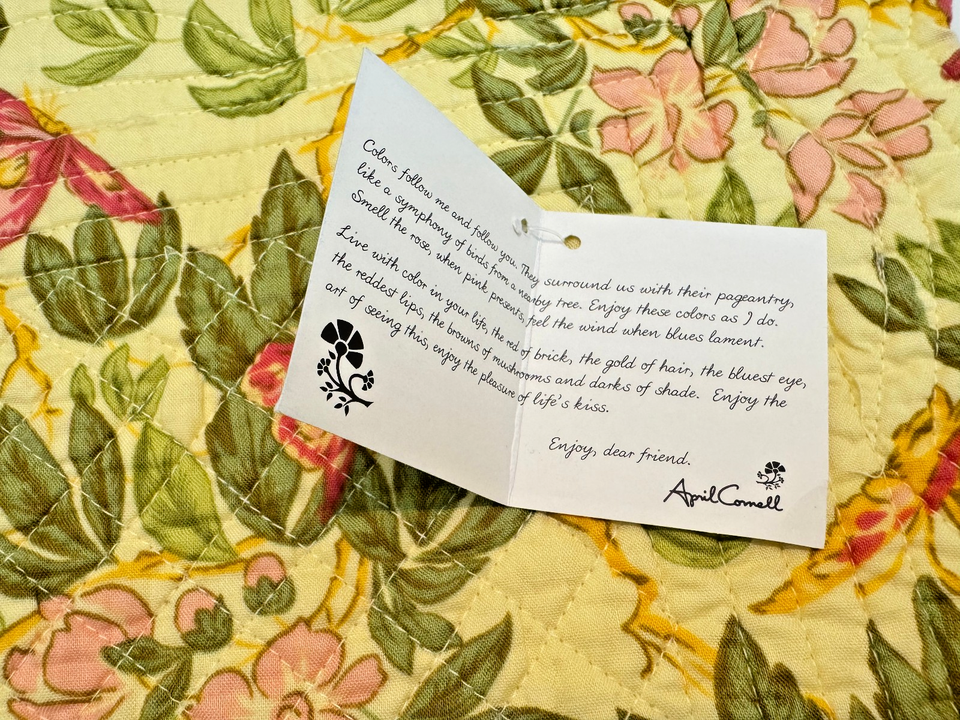 Colors follow me and follow you. They surround us with their pageantry,
like a symphony of birds from a nearby tree. Enjoy these colors as I do.
Smell the rose, when pink presents, feel the wind when blues lament.
Live with color in your life, the red of brick, the gold of hair, the bluest eye,
the reddest lips, the browns of mushrooms and darks of shade. Enjoy the
art of seeing this, enjoy the pleasure of life's kiss.
Enjoy, dear friend.
April Cornell